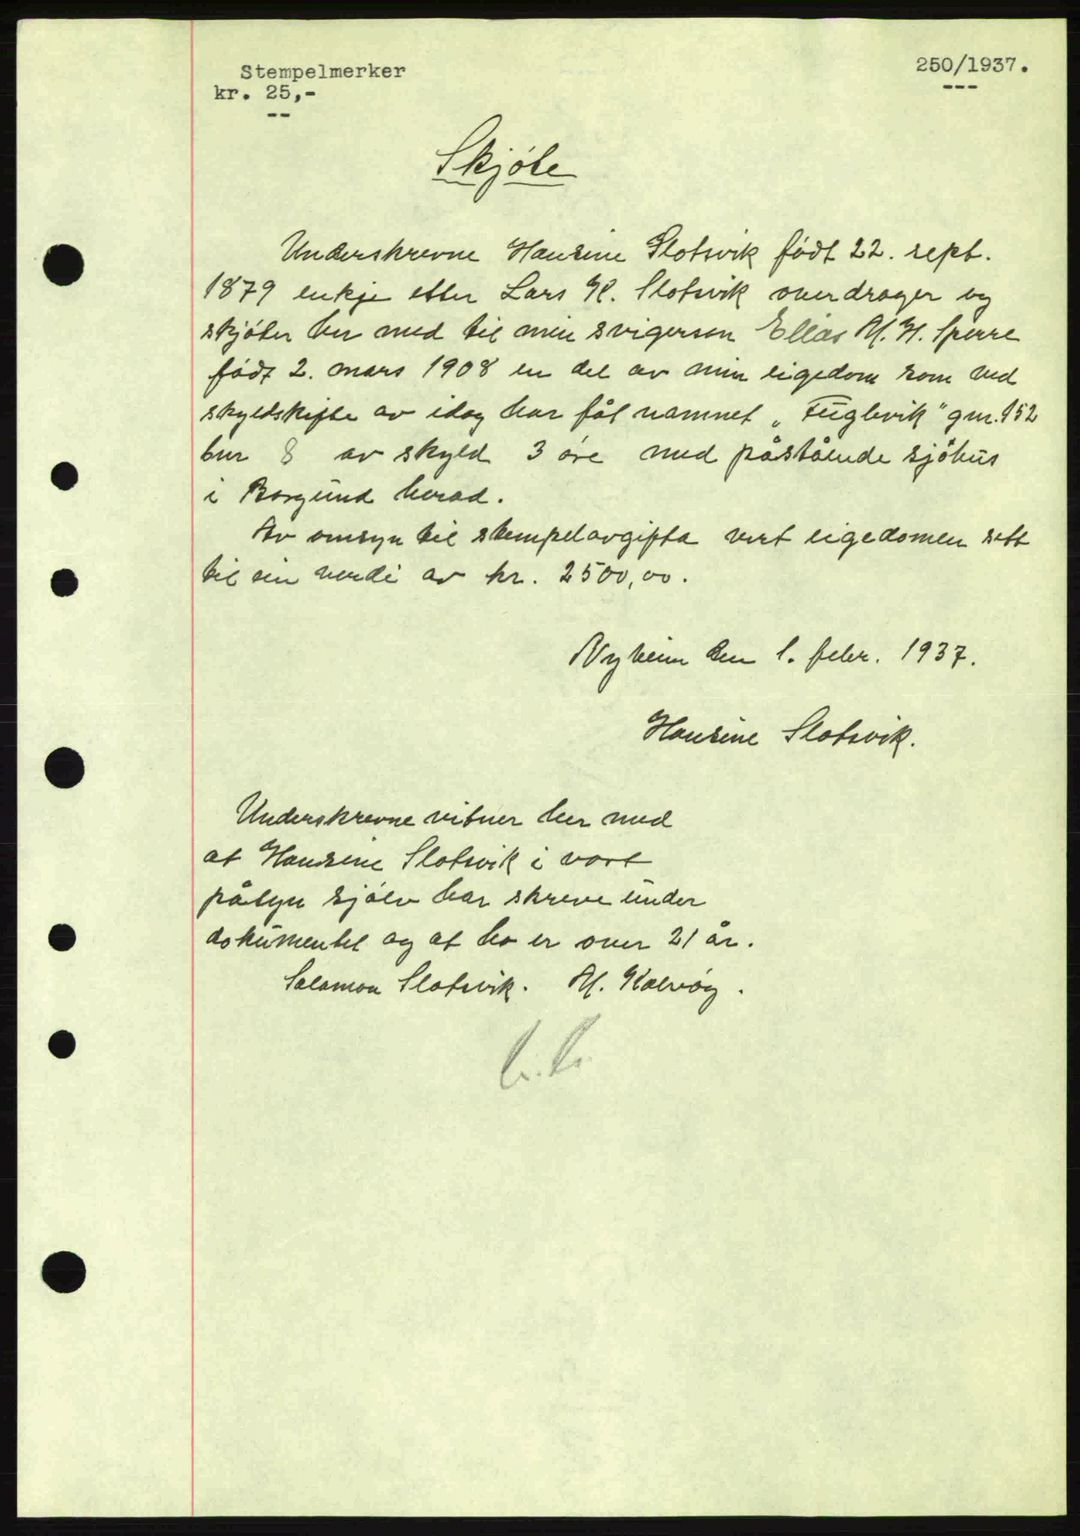 Stempelmerker
kr. 25,-
250/1937.
Skjöte
Underskrevne Hansine Slotsvik født 22. sept.
1879 enkje etter Lars K. Slotsvik overdrager og
skjöter her med til min svigerson Elias M. H. Sperre
født 2. mars 1908 en del av min eigedom som ved
skyldskifte av idag har fåt namnet „Fuglevik" gnr. 152
bnr 8 av skyld 3 öre med påstående sjöhus
i Borgund herad.
Av omsyn til stempelavgifta vert eigedomen sett
til ein verdi av kr. 2500,00.
Nyheim den 1. febr. 1937.
Hansine Slotsvik.
Underskrevne vitner her med
at Hansine Slotsvik i vort
påsyn sjölv har skreve under
dokumentet og at ho er over 21 år.
Salamon Slotsvik. M. Kalvög.